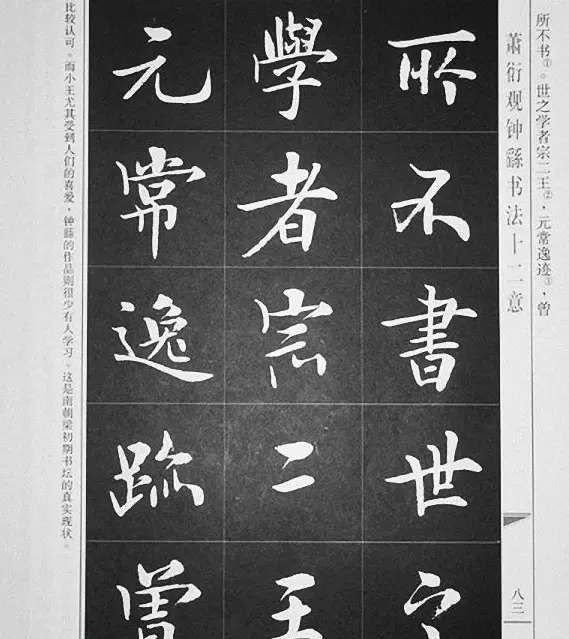 所不书①。世之学者宗二王②，元常逸迹③，曾
萧衍观钟繇书法十二意
八三
所不書世之
學者宗二王
元常逸跡曾
比较认可。而小王尤其受到人们的喜爱，钟繇的作品则很少有人学习。这是南朝梁初期书坛的真实现状。